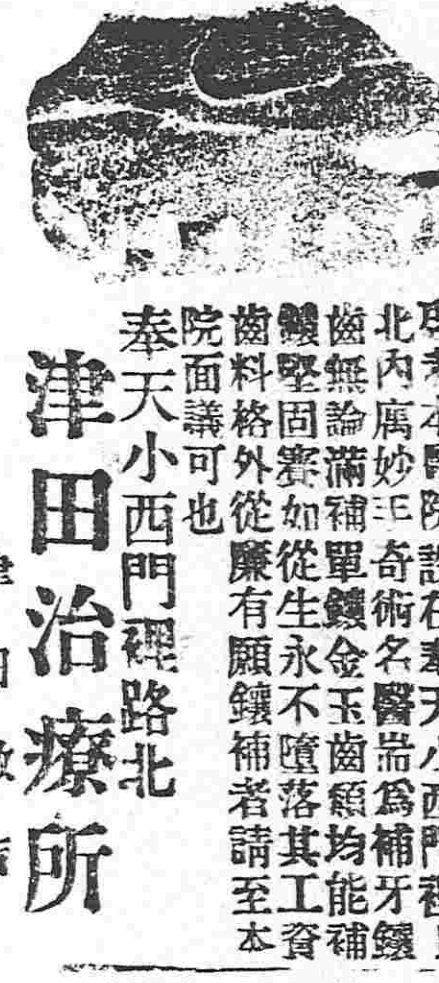 本醫院設在奉天小西門裡
北內廣妙手奇術名醫耑為補牙鑲
齒無論滿補單鑲金玉齒類均能補
鑲堅固賽如從生永不墮落其工資
齒料格外從廉有願鑲補者請至本
院面議可也
奉天小西門裡路北
津田治療所
津田